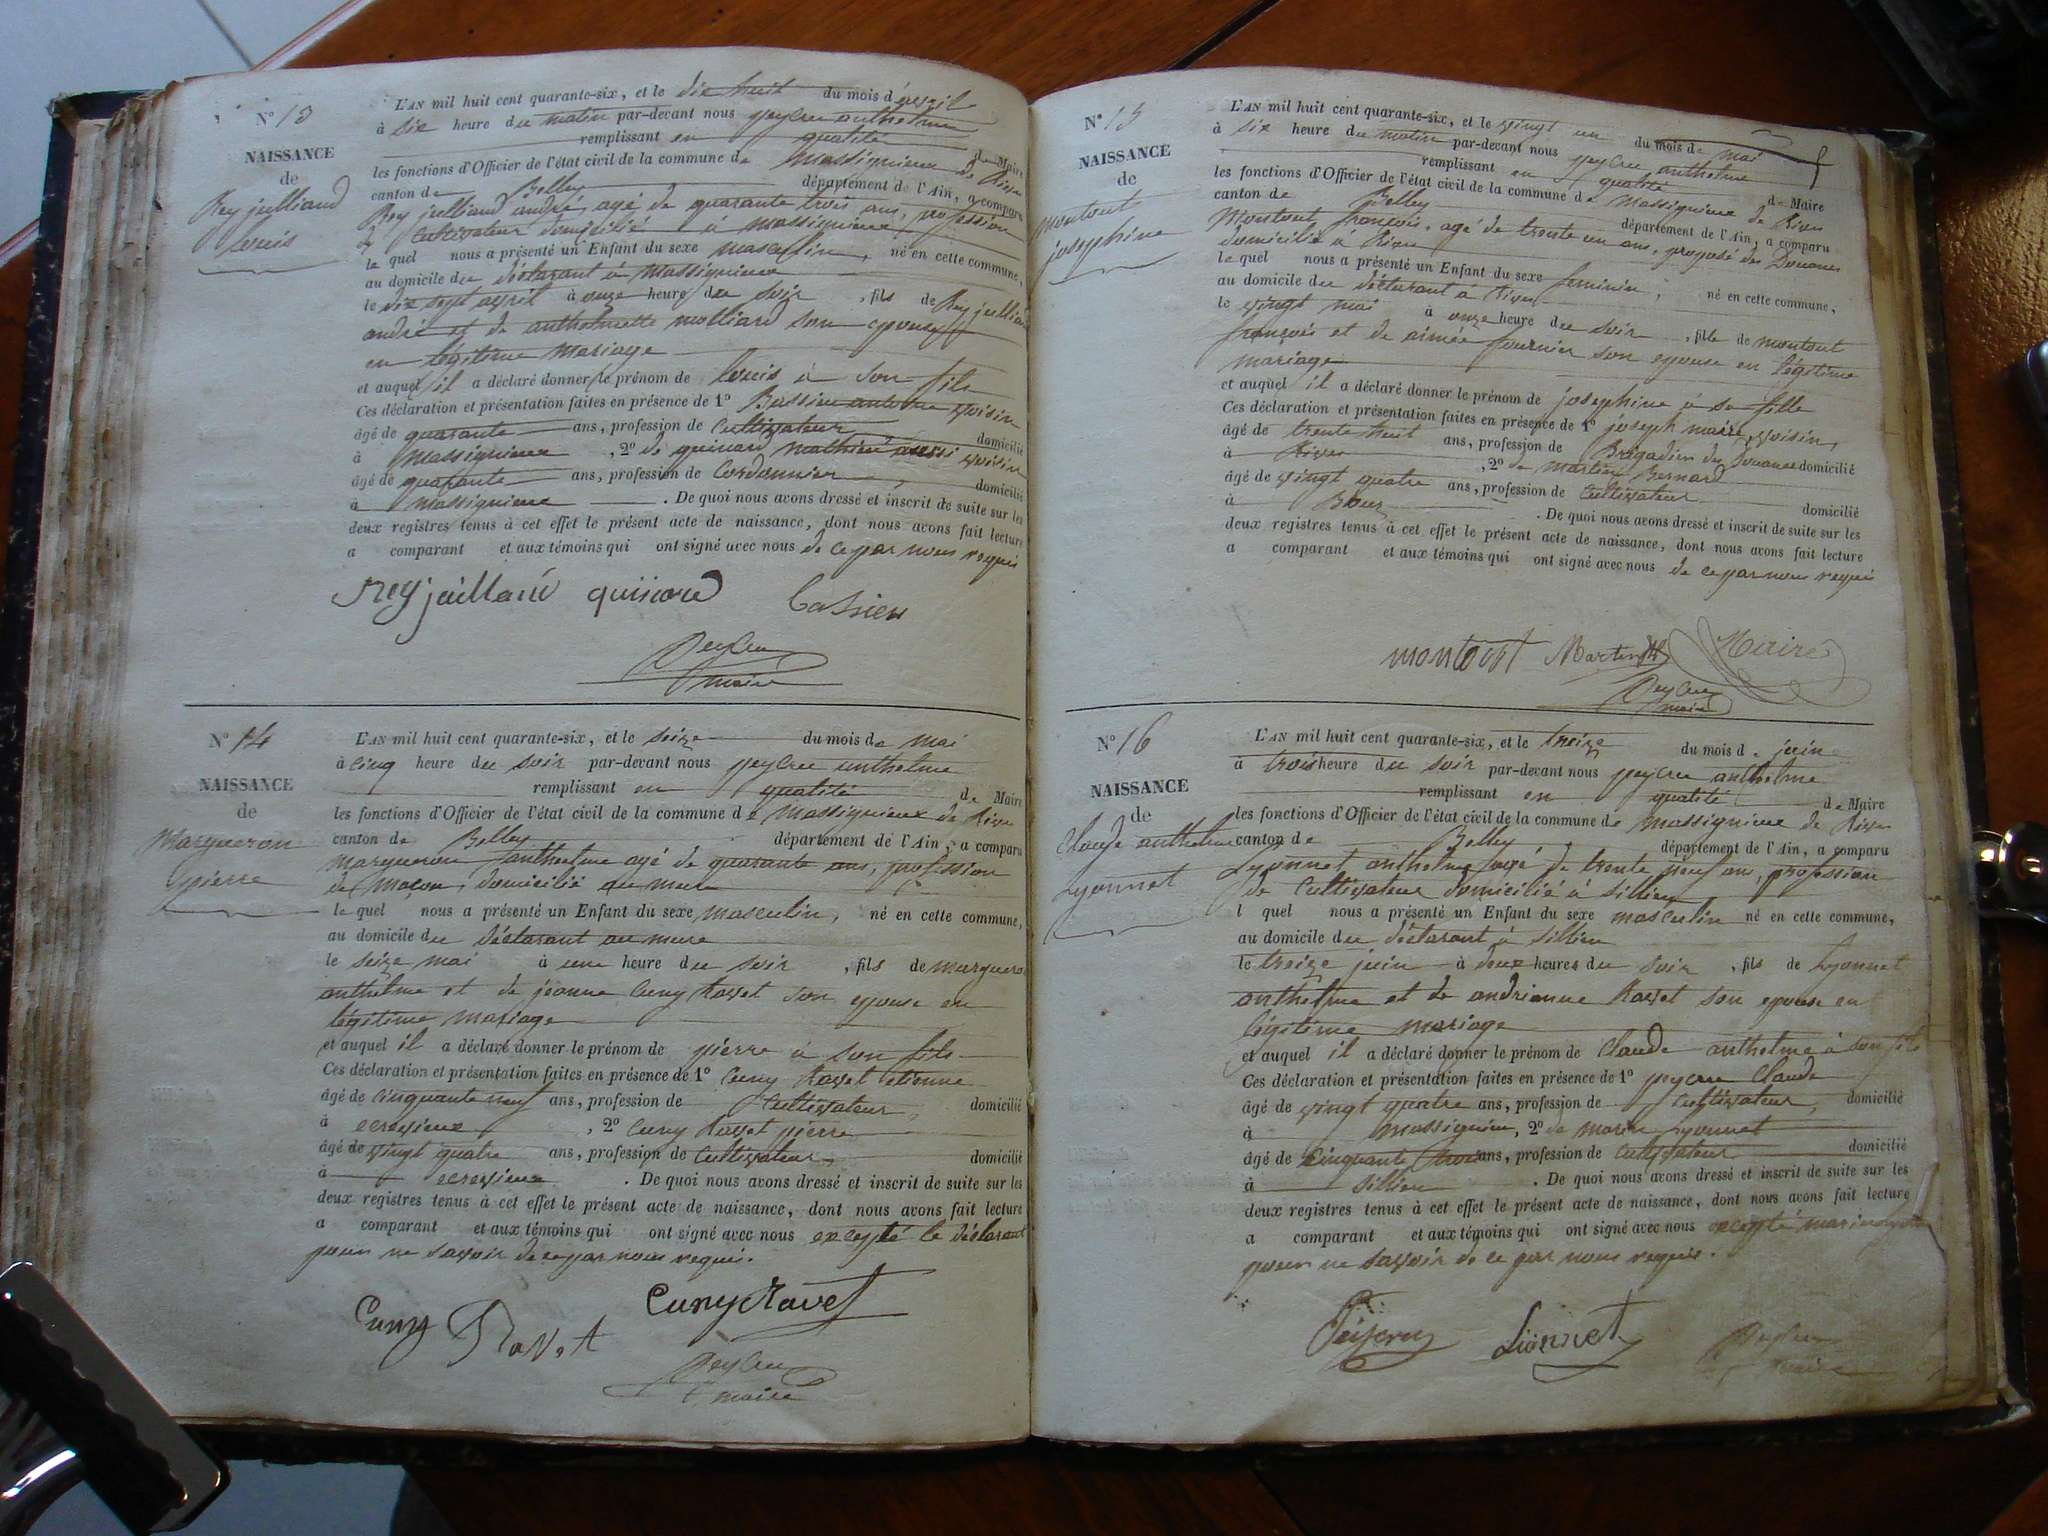 N° 13
NAISSANCE
de
Rey juilliard
louis
L'AN mil huit cent quarante-six, et le dix huit du mois d'avril
à six heure du matin par-devant nous peycru anthelme
remplissant en qualité de Maire
les fonctions d'Officier de l'état civil de la commune de massignieux de Rives
canton de Belley département de l'Ain, a comparu
Rey juilliard andré, agé de quarante trois ans, profession
de Cultivateur domicilié à massignieux
le quel nous a présenté un Enfant du sexe masculin, né en cette commune,
au domicile du déclarant à massignieux
le dix sept avril à onze heure du soir, fils de Rey juilliard
andré et de anthelmette molliard son epouse
en légitime mariage
et auquel il a déclaré donner le prénom de louis à son fils
Ces déclaration et présentation faites en présence de 1° Bassieu antoine voisin
âgé de quarante ans, profession de Cultivateur domicilié
à massignieux, 2° de quinard mathieu aussi voisin
âgé de quarante ans, profession de Cordonnier, domicilié
à massignieux. De quoi nous avons dressé et inscrit de suite sur les
deux registres tenus à cet effet le présent acte de naissance, dont nous avons fait lecture
a comparant et aux témoins qui ont signé avec nous de ce par nous requis
Rey juillard quinard bassieu
Peycru
maire
N° 14
NAISSANCE
de
Margueron
pierre
L'AN mil huit cent quarante-six, et le seize du mois de mai
à cinq heure du soir par-devant nous peycru anthelme
remplissant en qualité de Maire
les fonctions d'Officier de l'état civil de la commune de massignieux de Rives
canton de Belley département de l'Ain, a comparu
margueron anthelme agé de quarante ans, profession
de maçon, domicilié au mure
le quel nous a présenté un Enfant du sexe masculin, né en cette commune,
au domicile du déclarant au mure
le seize mai à une heure du soir, fils de margueron
anthelme et de jeanne Cuny Ravet son epouse en
légitime mariage
et auquel il a déclaré donner le prénom de pierre à son fils
Ces déclaration et présentation faites en présence de 1° Cuny Ravet etienne
âgé de cinquante neuf ans, profession de Cultivateur, domicilié
à ecrevieux, 2° Cuny Ravet pierre
âgé de vingt quatre ans, profession de Cultivateur, domicilié
à ecrevieux. De quoi nous avons dressé et inscrit de suite sur les
deux registres tenus à cet effet le présent acte de naissance, dont nous avons fait lecture
a comparant et aux témoins qui ont signé avec nous excepté le déclarant
pour ne savoir de ce par nous requis.
Cuny Ravet Cuny Ravet
Peycru
maire
N° 15
NAISSANCE
de
montout
josephine
L'AN mil huit cent quarante-six, et le vingt un du mois de mai
à six heure du matin par-devant nous peycru anthelme
remplissant en qualité de Maire
les fonctions d'Officier de l'état civil de la commune de massignieux de Rives
canton de Belley département de l'Ain, a comparu
Montout françois, agé de trente un ans, préposé des Douanes
domicilié à Rives
le quel nous a présenté un Enfant du sexe feminin, né en cette commune,
au domicile du déclarant à Rives
le vingt mai à onze heure du soir, fille de montout
françois et de aimée fournier son epouse en légitime
mariage
et auquel il a déclaré donner le prénom de josephine à sa fille
Ces déclaration et présentation faites en présence de 1° joseph maire, voisin,
âgé de trente huit ans, profession de Brigadier des Douanes domicilié
à Rives, 2° de martin Bernard
âgé de vingt quatre ans, profession de Cultivateur domicilié
à. De quoi nous avons dressé et inscrit de suite sur les
deux registres tenus à cet effet le présent acte de naissance, dont nous avons fait lecture
a comparant et aux témoins qui ont signé avec nous de ce par nous requis
montout Martin Maire
Peycru
maire
N° 16
NAISSANCE
de
Claude anthelme
Lyonnet
L'AN mil huit cent quarante-six, et le treize du mois de juin
à trois heure du soir par-devant nous peycru anthelme
remplissant en qualité de Maire
les fonctions d'Officier de l'état civil de la commune de massignieux de Rives
canton de Belley département de l'Ain, a comparu
Lyonnet anthelme, agé de trente neuf ans, profession
de Cultivateur domicilié à sillieu
l quel nous a présenté un Enfant du sexe masculin né en cette commune,
au domicile du déclarant à sillieu
le treize juin à deux heures du soir, fils de Lyonnet
anthelme et de andrianne Ravet son epouse en
légitime mariage
et auquel il a déclaré donner le prénom de Claude anthelme à son fils
Ces déclaration et présentation faites en présence de 1° peycru Claude
âgé de vingt quatre ans, profession de Cultivateur, domicilié
à massignieu, 2° de marin Lyonnet
âgé de Cinquante trois ans, profession de Cultivateur domicilié
à sillieu. De quoi nous avons dressé et inscrit de suite sur les
deux registres tenus à cet effet le présent acte de naissance, dont nous avons fait lecture
a comparant et aux témoins qui ont signé avec nous excepté marin lyonnet
pour ne savoir de ce par nous requis.
Peycru Lionnet Peycru
maire